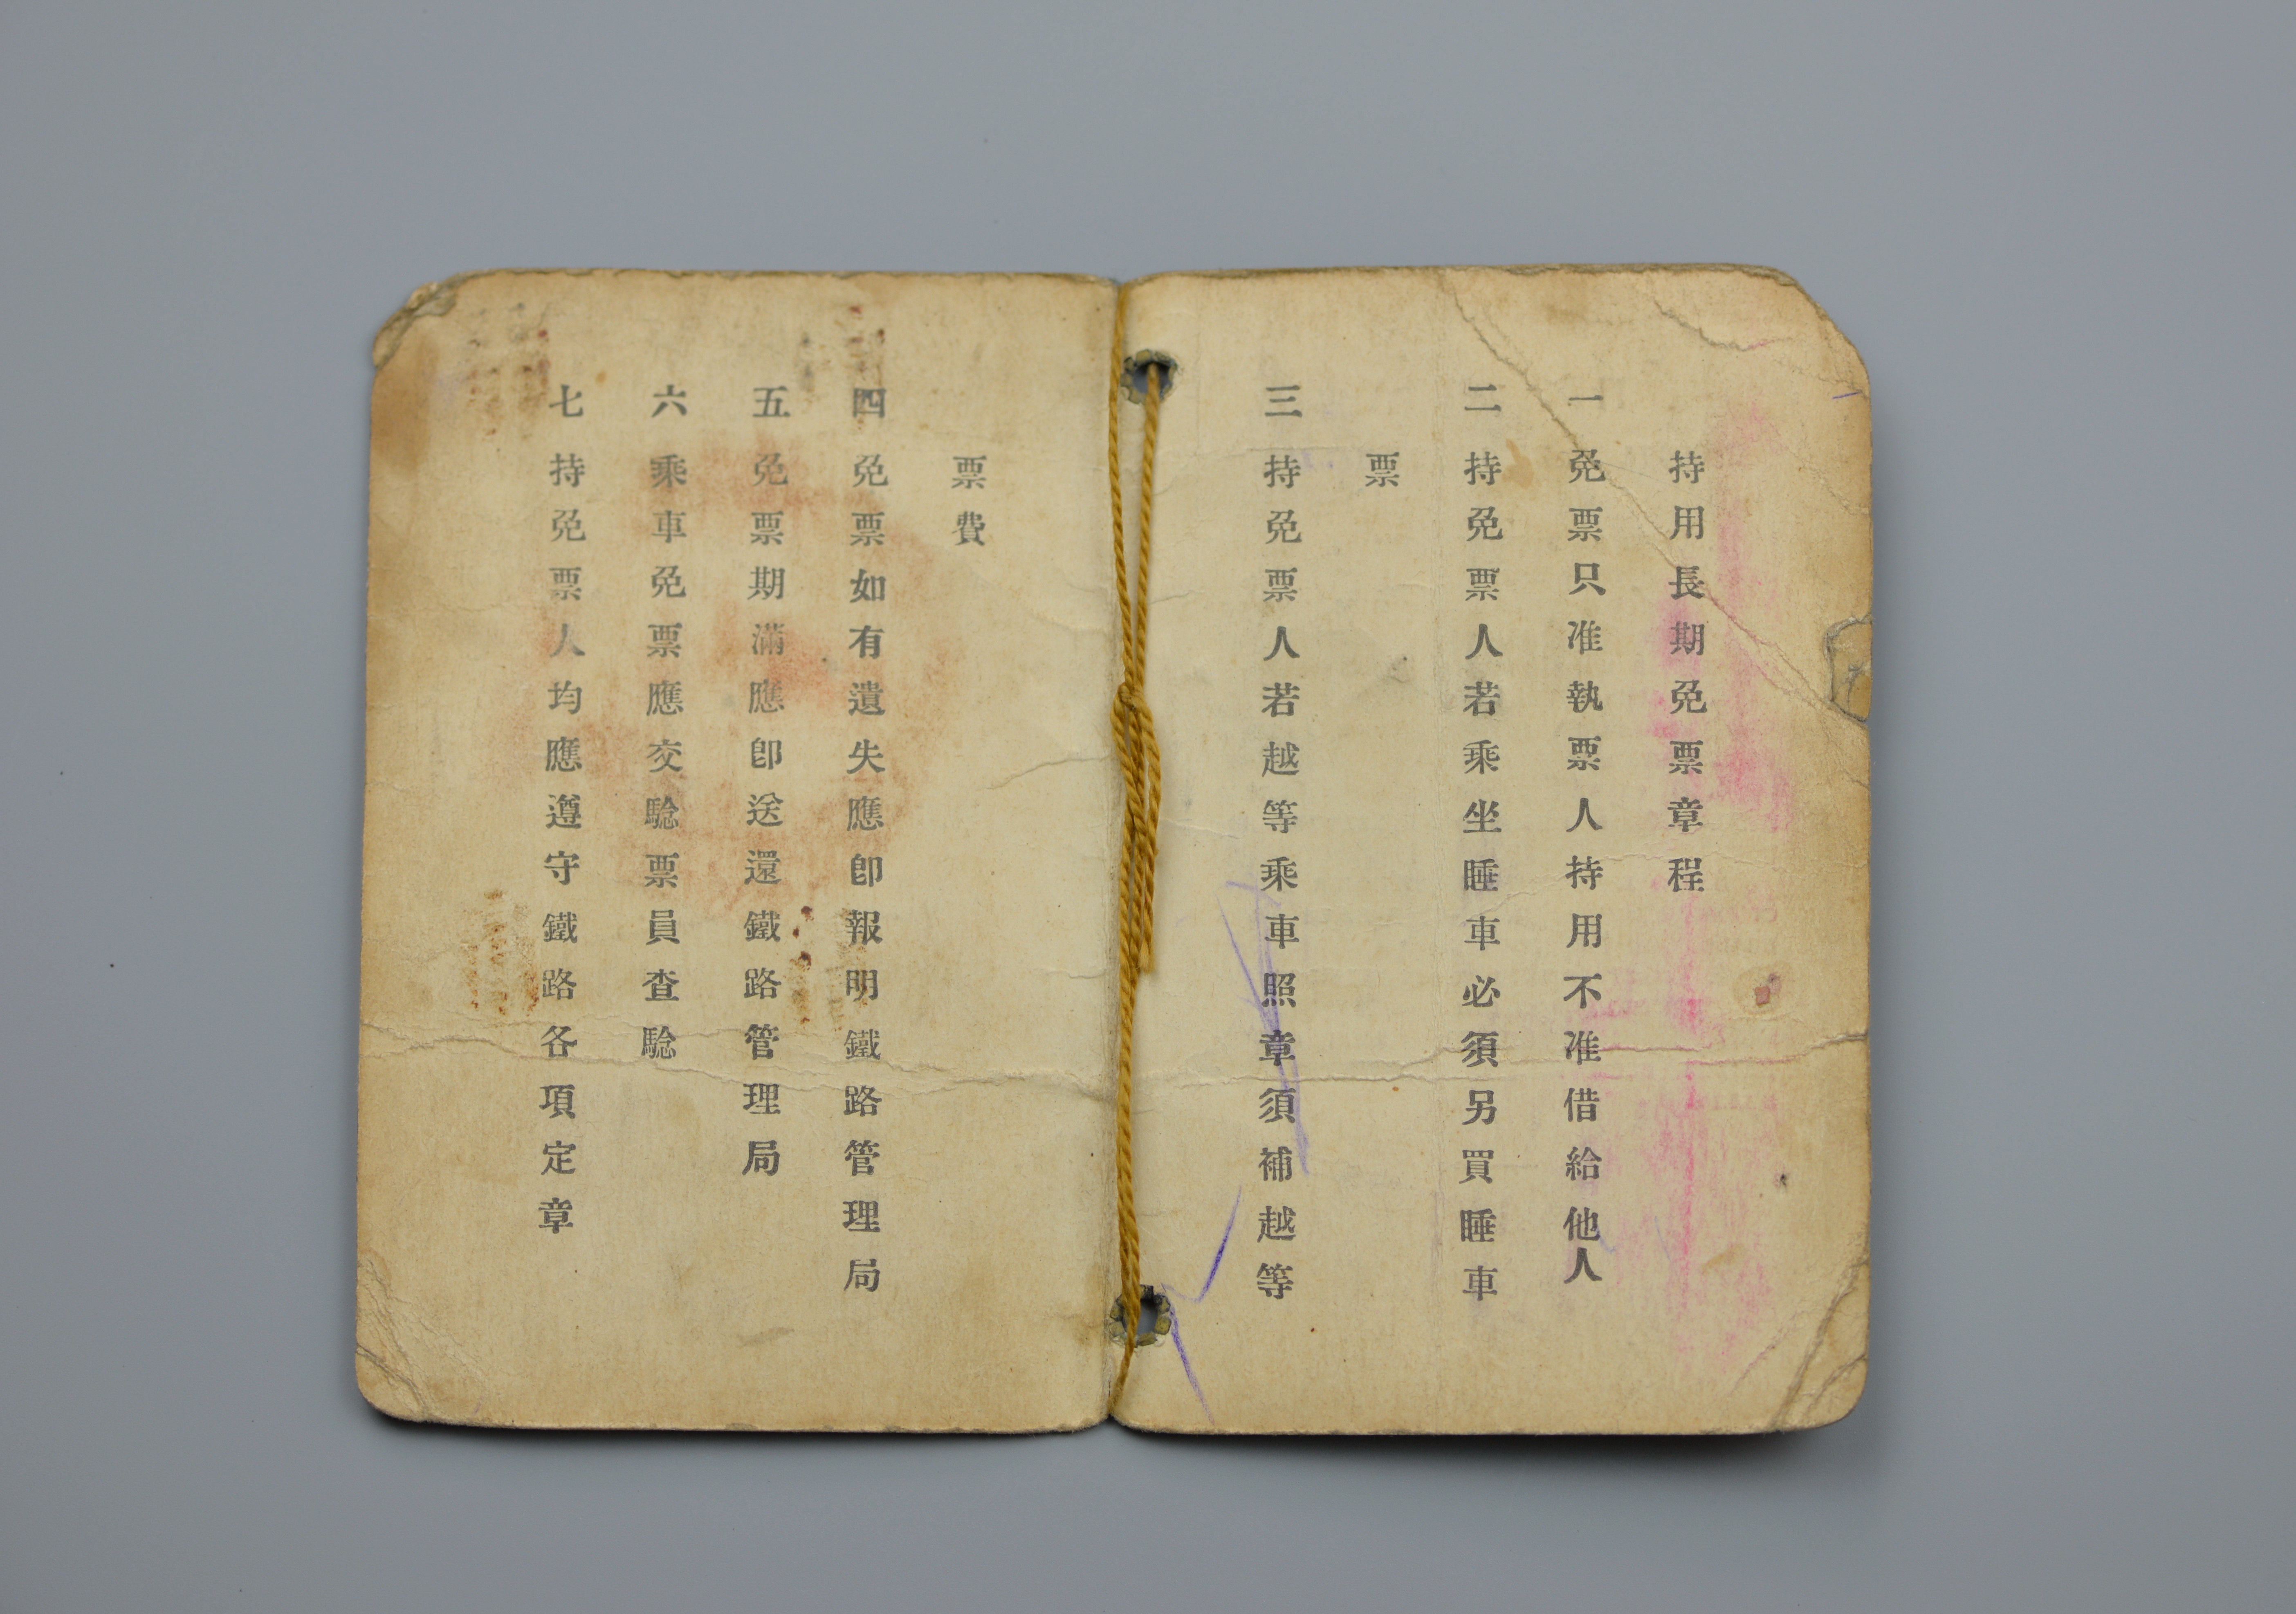 持用長期免票章程
一 免票只准執票人持用不准借給他人
二 持免票人若乘坐睡車必須另買睡車
票
三 持免票人若越等乘車照章須補越等
票費
四 免票如有遺失應卽報明鐵路管理局
五 免票期滿應卽送還鐵路管理局
六 乘車免票應交騐票員查騐
七 持免票人均應遵守鐵路各項定章